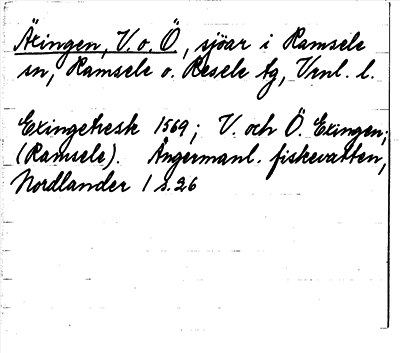 Äxingen, V. o. Ö, sjöar i Ramsele
sn, Ramsele o. Resele tg, Vrnl. l.
Exingetresk 1569; V. och Ö. Exingen;
(Ramsele). Ångermanl. fiskevatten,
Nordlander 1 s. 26